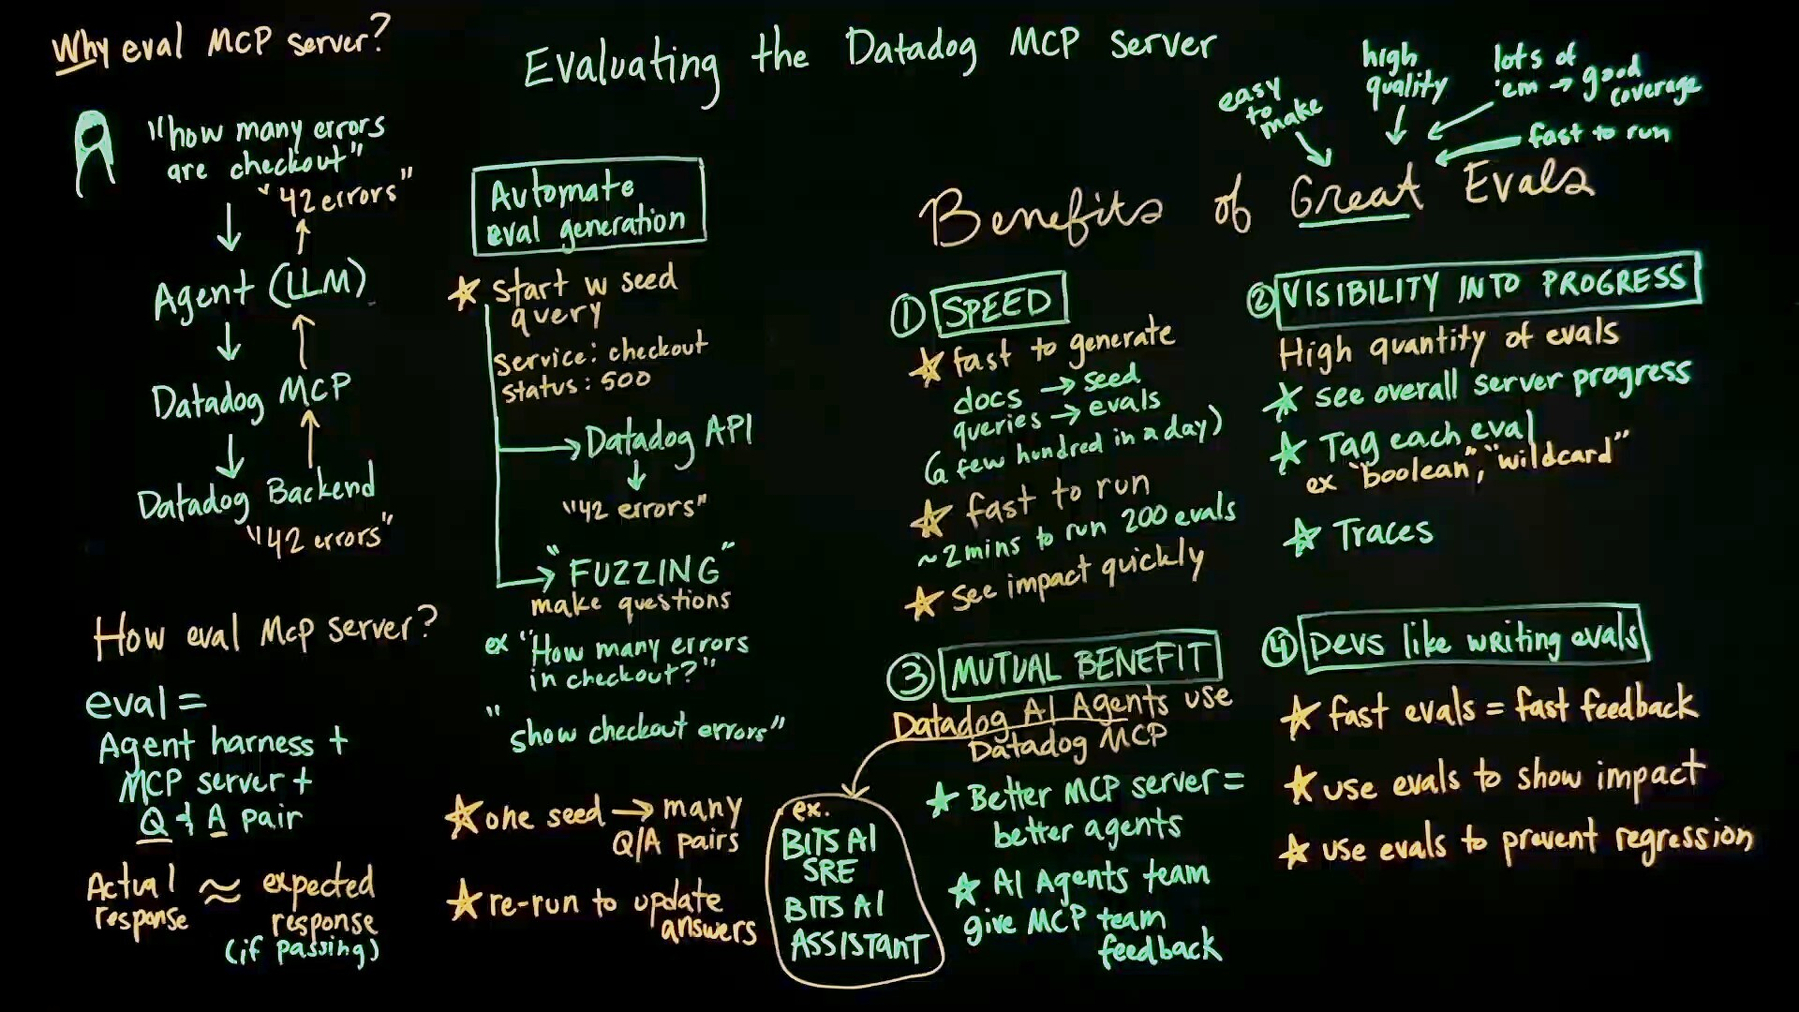 Why eval MCP server?
"how many errors
are checkout"
"42 errors"
Agent (LLM)
Datadog MCP
Datadog Backend
"42 errors"
How eval MCP server?
eval =
Agent harness +
MCP server +
Q & A pair
Actual ≈ expected
response response
(if passing)
Evaluating the Datadog MCP server
Automate
eval generation
start w seed
query
service: checkout
status: 500
Datadog API
"42 errors"
"FUZZING"
make questions
ex "How many errors
in checkout?"
"show checkout errors"
one seed → many
Q/A pairs
re-run to update
answers
easy
to
make
high
quality
lots of
'em → good
coverage
fast to run
Benefits of Great Evals
① SPEED
fast to generate
docs → seed
queries → evals
(a few hundred in a day)
fast to run
~2mins to run 200 evals
see impact quickly
② VISIBILITY INTO PROGRESS
High quantity of evals
see overall server progress
Tag each eval
ex "boolean", "wildcard"
Traces
③ MUTUAL BENEFIT
Datadog AI Agents use
Datadog MCP
ex.
BITS AI
SRE
BITS AI
ASSISTANT
Better MCP server =
better agents
AI Agents team
give MCP team
feedback
④ Devs like writing evals
fast evals = fast feedback
use evals to show impact
use evals to prevent regression